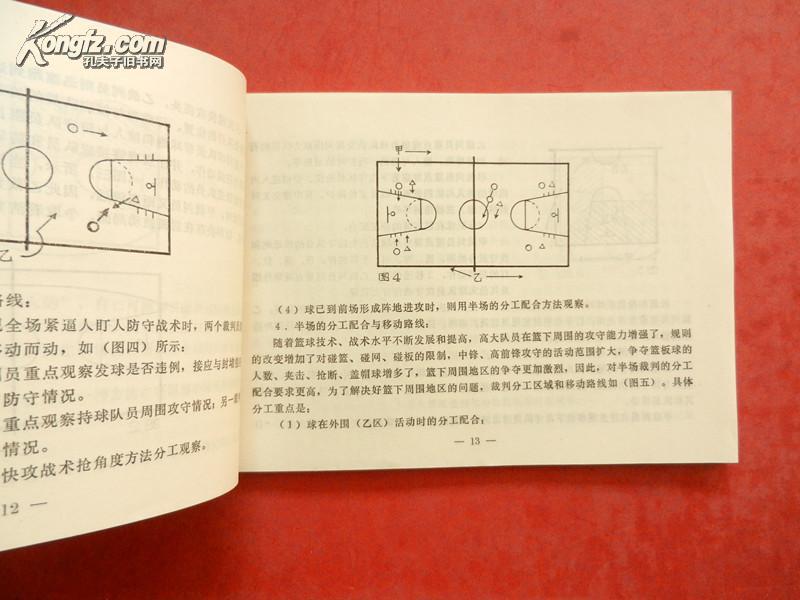 Kongfz.com
孔夫子旧书网
乙
路线：
现全场紧逼人盯人防守战术时，两个裁判员
移动而动，如（图四）所示：
员重点观察发球是否违例，接应与封堵
防守情况。
重点观察持球队员周围攻守情况；另一
情况。
快攻战术抢角度方法分工观察。
12 —
甲
乙
图4
（4）球已到前场形成阵地进攻时，则用半场的分工配合方法观察。
4．半场的分工配合与移动路线：
随着篮球技术、战术水平不断发展和提高，高大队员在篮下周围的攻守能力增强了，规则
的改变增加了对碰篮、碰网、碰板的限制，中锋、高前锋攻守的活动范围扩大，争夺篮板球的
人数、夹击、抢断、盖帽球增多了，篮下周围地区的争夺更加激烈，因此，对半场裁判的分工
配合要求更高，为了解决好篮下周围地区的问题，裁判分工区域和移动路线如（图五）。具体
分工重点是：
（1）球在外围（乙区）活动时的分工配合；
— 13 —